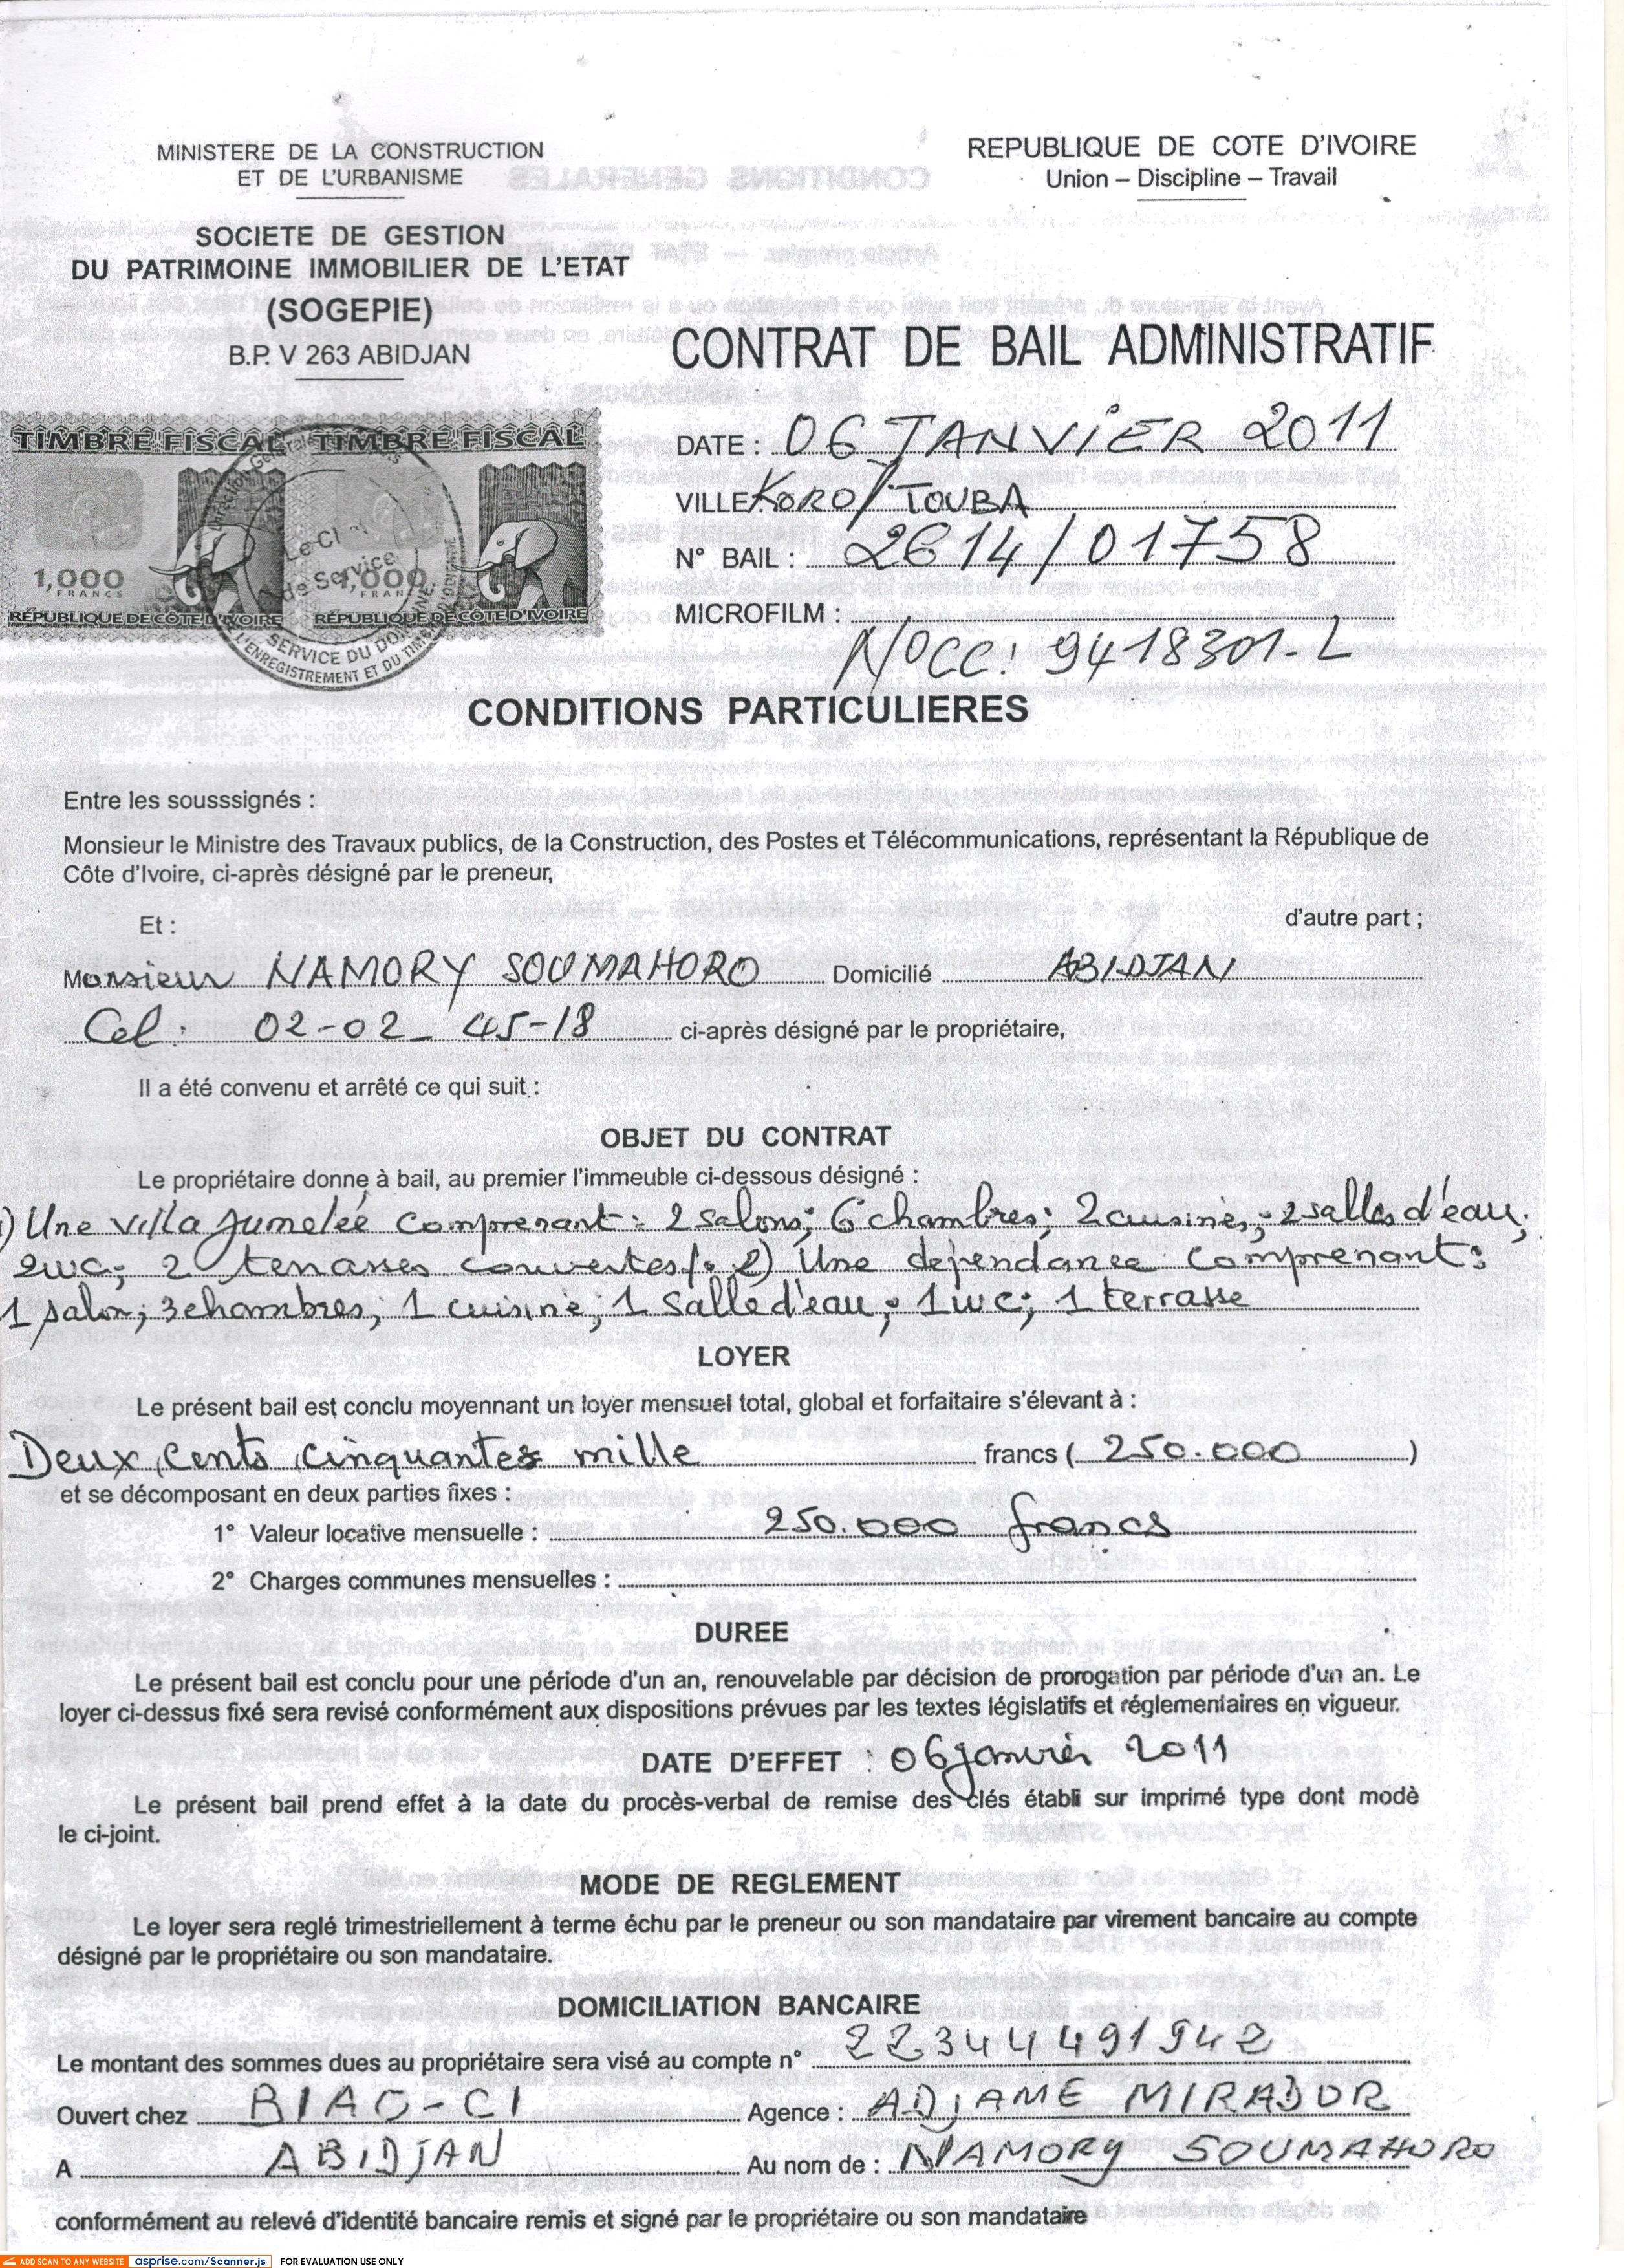 MINISTERE DE LA CONSTRUCTION
ET DE L'URBANISME
REPUBLIQUE DE COTE D'IVOIRE
Union – Discipline – Travail
SOCIETE DE GESTION
DU PATRIMOINE IMMOBILIER DE L'ETAT
(SOGEPIE)
B.P. V 263 ABIDJAN
CONTRAT DE BAIL ADMINISTRATIF
TIMBRE FISCAL TIMBRE FISCAL
1,000 1,000
FRANCS
REPUBLIQUE DE CÔTE D'IVOIRE REPUBLIQUE DE CÔTE D'IVOIRE
de Service
SERVICE DU DOMAINE
L'ENREGISTREMENT ET DU TIMBRE
DATE : 06 JANVIER 2011
VILLE KORO / TOUBA
N° BAIL : 2614/01758
MICROFILM :
N°CC: 9418301-L
CONDITIONS PARTICULIERES
Entre les sousssignés :
Monsieur le Ministre des Travaux publics, de la Construction, des Postes et Télécommunications, représentant la République de
Côte d'Ivoire, ci-après désigné par le preneur,
Et : d'autre part ;
Monsieur NAMORY SOUMAHORO Domicilié ABIDJAN
Cel : 02-02-45-18 ci-après désigné par le propriétaire,
Il a été convenu et arrêté ce qui suit :
OBJET DU CONTRAT
Le propriétaire donne à bail, au premier l'immeuble ci-dessous désigné :
1) Une villa jumelée comprenant : 2 salons; 6 chambres; 2 cuisines; 2 salles d'eau;
2wc; 2 terrasses couvertes/. 2) Une dépendance comprenant :
1 salon; 3 chambres; 1 cuisine; 1 salle d'eau; 1 wc; 1 terrasse
LOYER
Le présent bail est conclu moyennant un loyer mensuel total, global et forfaitaire s'élevant à :
Deux cents cinquantes mille francs ( 250.000 )
et se décomposant en deux parties fixes :
1° Valeur locative mensuelle : 250.000 francs
2° Charges communes mensuelles :
DUREE
Le présent bail est conclu pour une période d'un an, renouvelable par décision de prorogation par période d'un an. Le
loyer ci-dessus fixé sera revisé conformément aux dispositions prévues par les textes législatifs et réglementaires en vigueur.
DATE D'EFFET : 06 janvier 2011
Le présent bail prend effet à la date du procès-verbal de remise des clés établi sur imprimé type dont modè
le ci-joint.
MODE DE REGLEMENT
Le loyer sera reglé trimestriellement à terme échu par le preneur ou son mandataire par virement bancaire au compte
désigné par le propriétaire ou son mandataire.
DOMICILIATION BANCAIRE
Le montant des sommes dues au propriétaire sera visé au compte n° 22344491942
Ouvert chez BIAO-CI Agence : ADJAME MIRADOR
A ABIDJAN Au nom de : NAMORY SOUMAHORO
conformément au relevé d'identité bancaire remis et signé par le propriétaire ou son mandataire
ADD SCAN TO ANY WEBSITE asprise.com/Scanner.js FOR EVALUATION USE ONLY